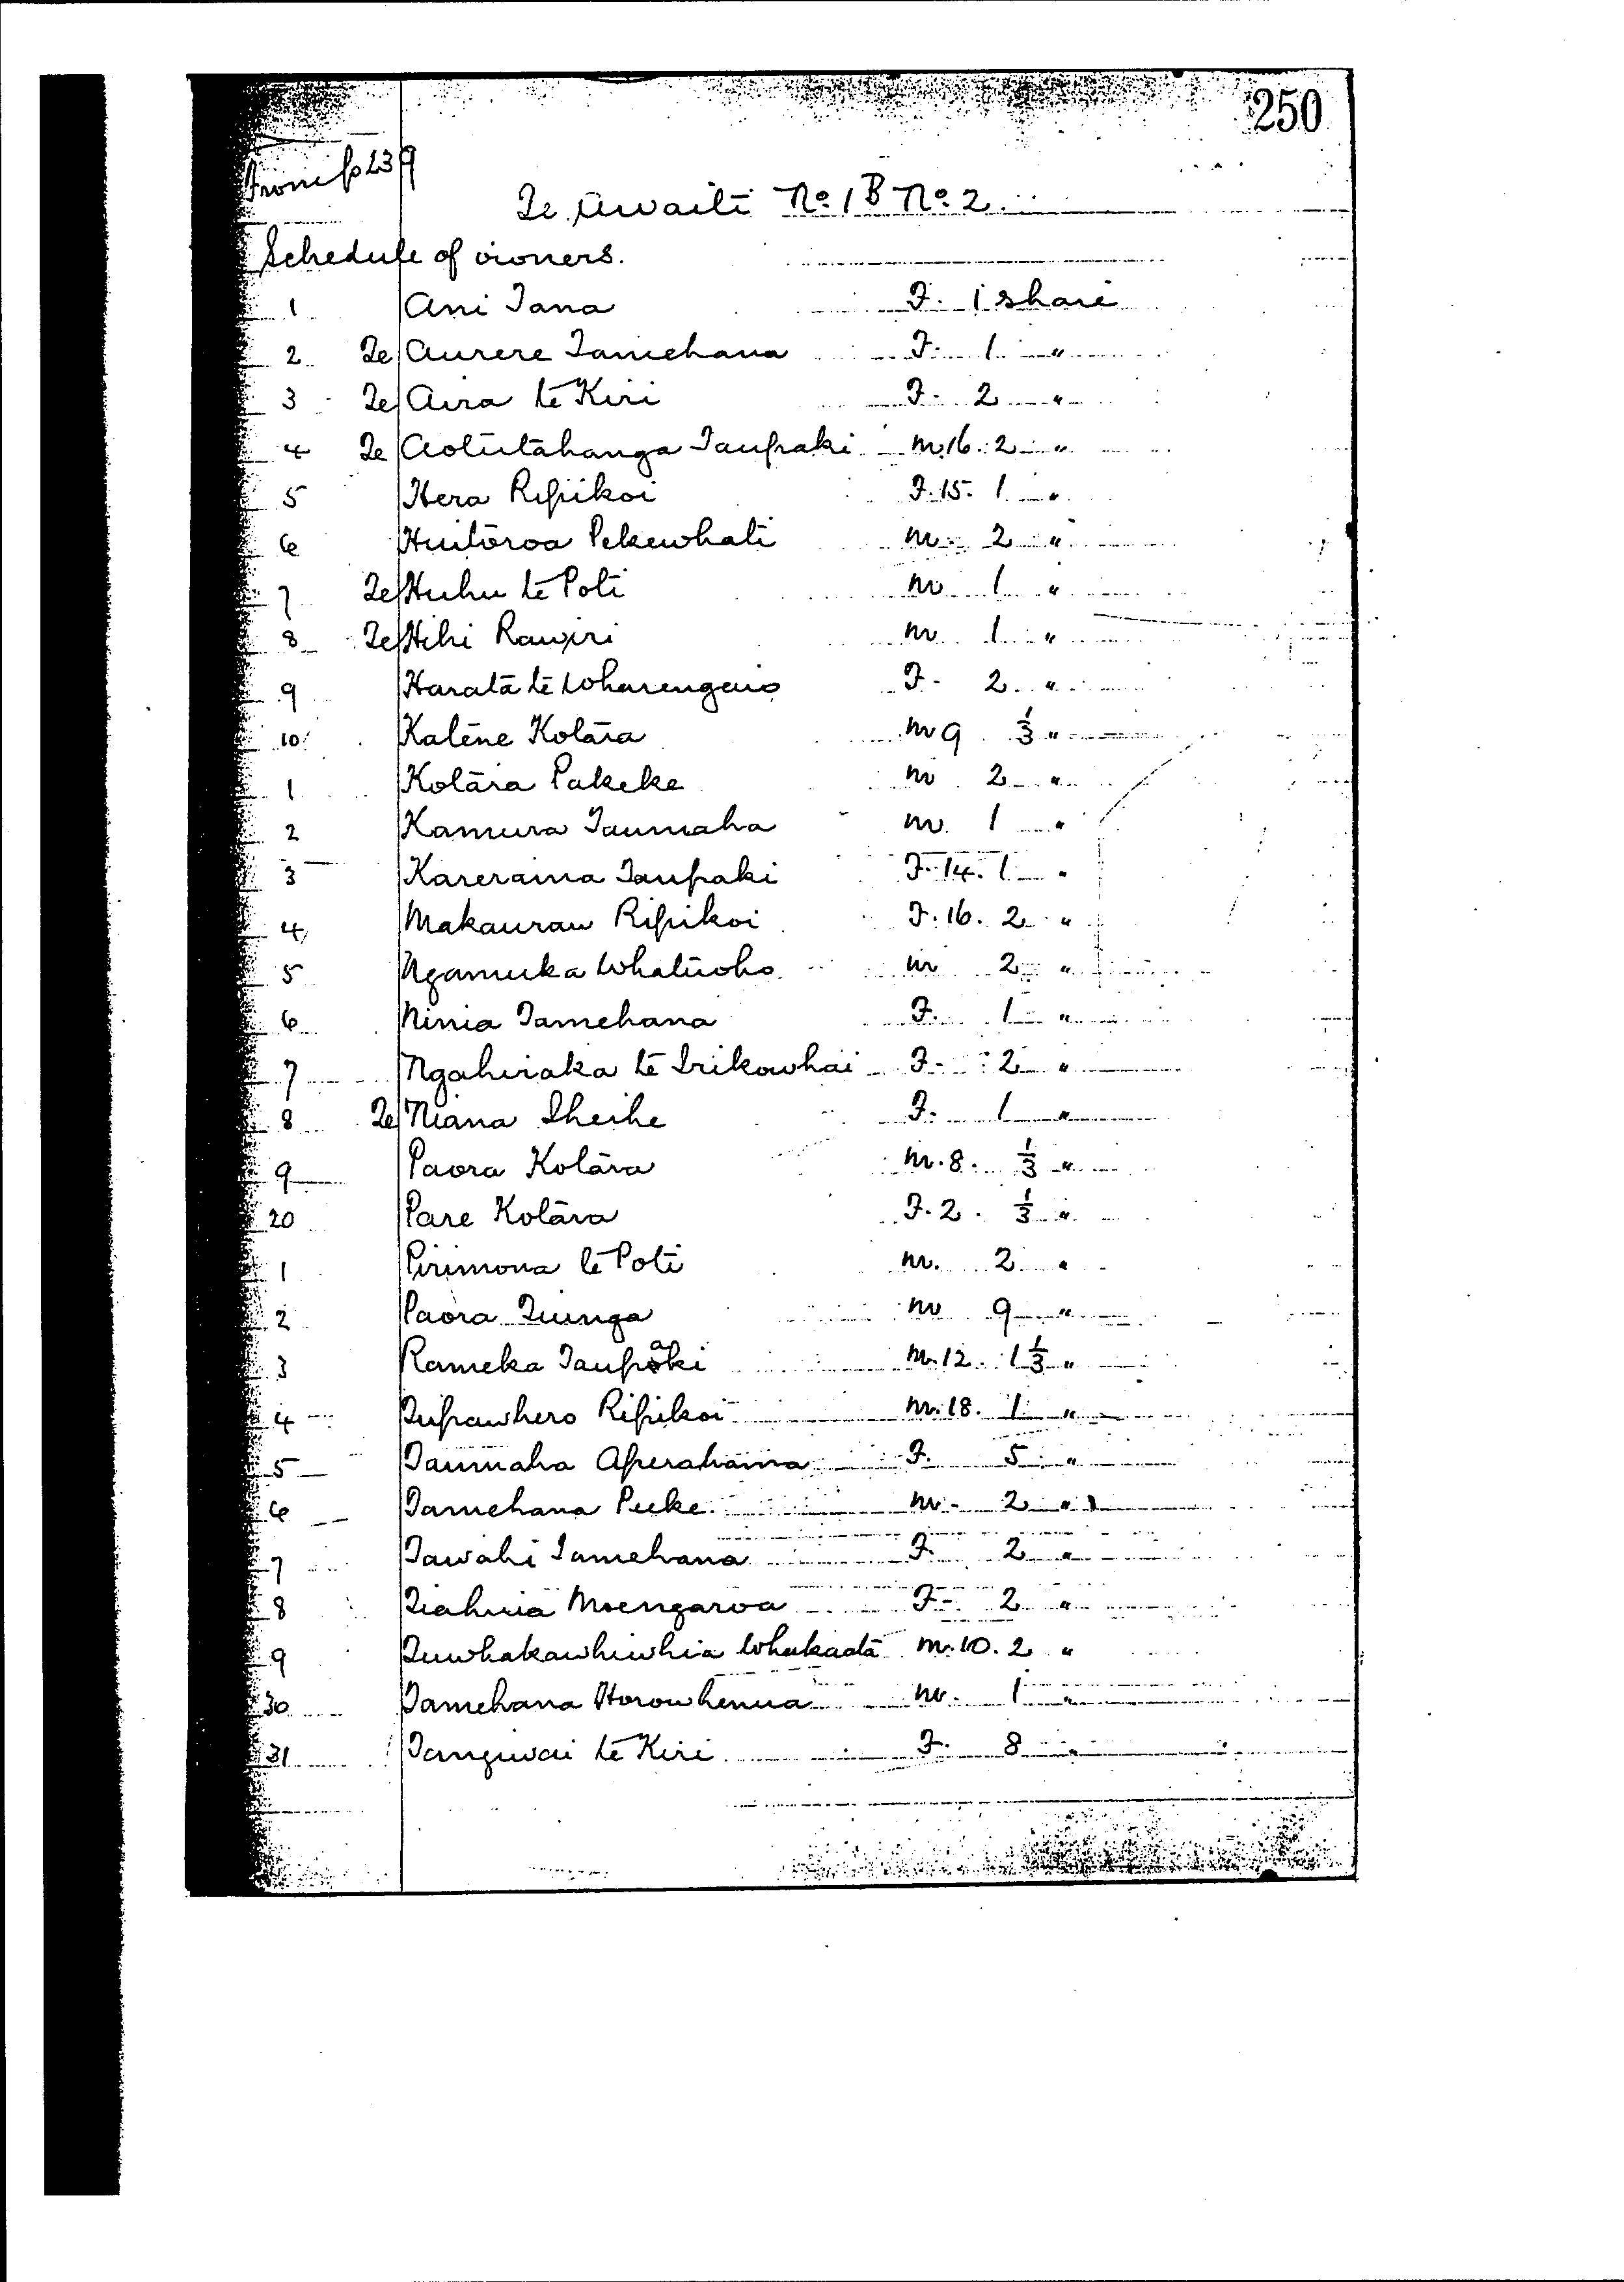 250
From p 239
Te Awaiti No 1B No 2
Schedule of owners.
1 Ani Tana F. 1 share
2 Te Aurere Tamehana F. 1 "
3 Te Aira te Kiri F. 2 "
4 Te Aotutahanga Taupaki m.16. 2 "
5 Hera Ripikoi F.15. 1 "
6 Huitoroa Pekewhati m. 2 "
7 Te Huhu te Poti m 1 "
8 Te Hihi Rawiri m. 1 "
9 Harata te Wharengaio F. 2 "
10 Katene Kotara m 9 1/3 "
1 Kotara Pakeke m 2 "
2 Kamura Taumaha m. 1 "
3 Kareraina Taupaki F.14. 1 "
4 Makaurau Ripikoi F.16. 2 "
5 Ngamuka Whatuoho m 2 "
6 Ninia Tamehana F. 1 "
7 Ngahiraka te Irikowhai F. 2 "
8 Te Niana Iheihe F. 1 "
9 Paora Kotara m.8. 1/3 "
20 Pare Kotara F.2. 1/3 "
1 Pirimona te Poti m. 2 "
2 Paora Tuinga m 9 "
3 Rameka Taupaki m.12. 1 1/3 "
4 Tupawhero Ripikoi m.18. 1 "
5 Taumaha Aperahama F. 5 "
6 Tamehana Peeke m. 2 "
7 Tawahi Tamehana F. 2 "
8 Tiahuia Moengaroa F. 2 "
9 Tuwhakawhiwhia Whakaata m.10. 2 "
30 Tamehana Horowhenua m. 1 "
31 Tangiwai te Kiri F. 8 "